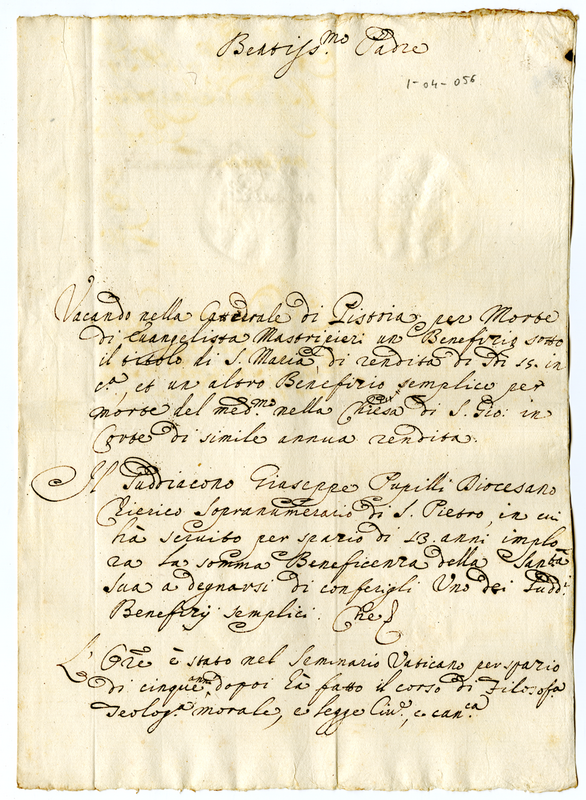 Beatiss.mo Padre
1-04-056
Vacando nella Cattedrale di Pistoia per Morte
di Evangelista Mastricieri un Benefizio sotto
il titolo di S. Maria di rendita di 15. in
c.a, et un altro Benefizio semplice per
morte del med.mo nella Chiesa di S. Gio: in
Corte di simile annua rendita.
Il Suddiacono Giuseppe Pupilli Diocesano
Chierico Sopranumerario di S. Pietro, in cui
hà servito per spazio di 13. anni implo
ra la somma Beneficenza della Santà
Sua a degnarsi di conferigli Uno dei Sudd.i
Benefizj semplici. Che
L' Ore è stato nel Seminario Vaticano per spazio
di cinque anni, dopoi hà fatto il corso di Filosof.a
Teolog.a morale, e legge Civ.e, e can.ca